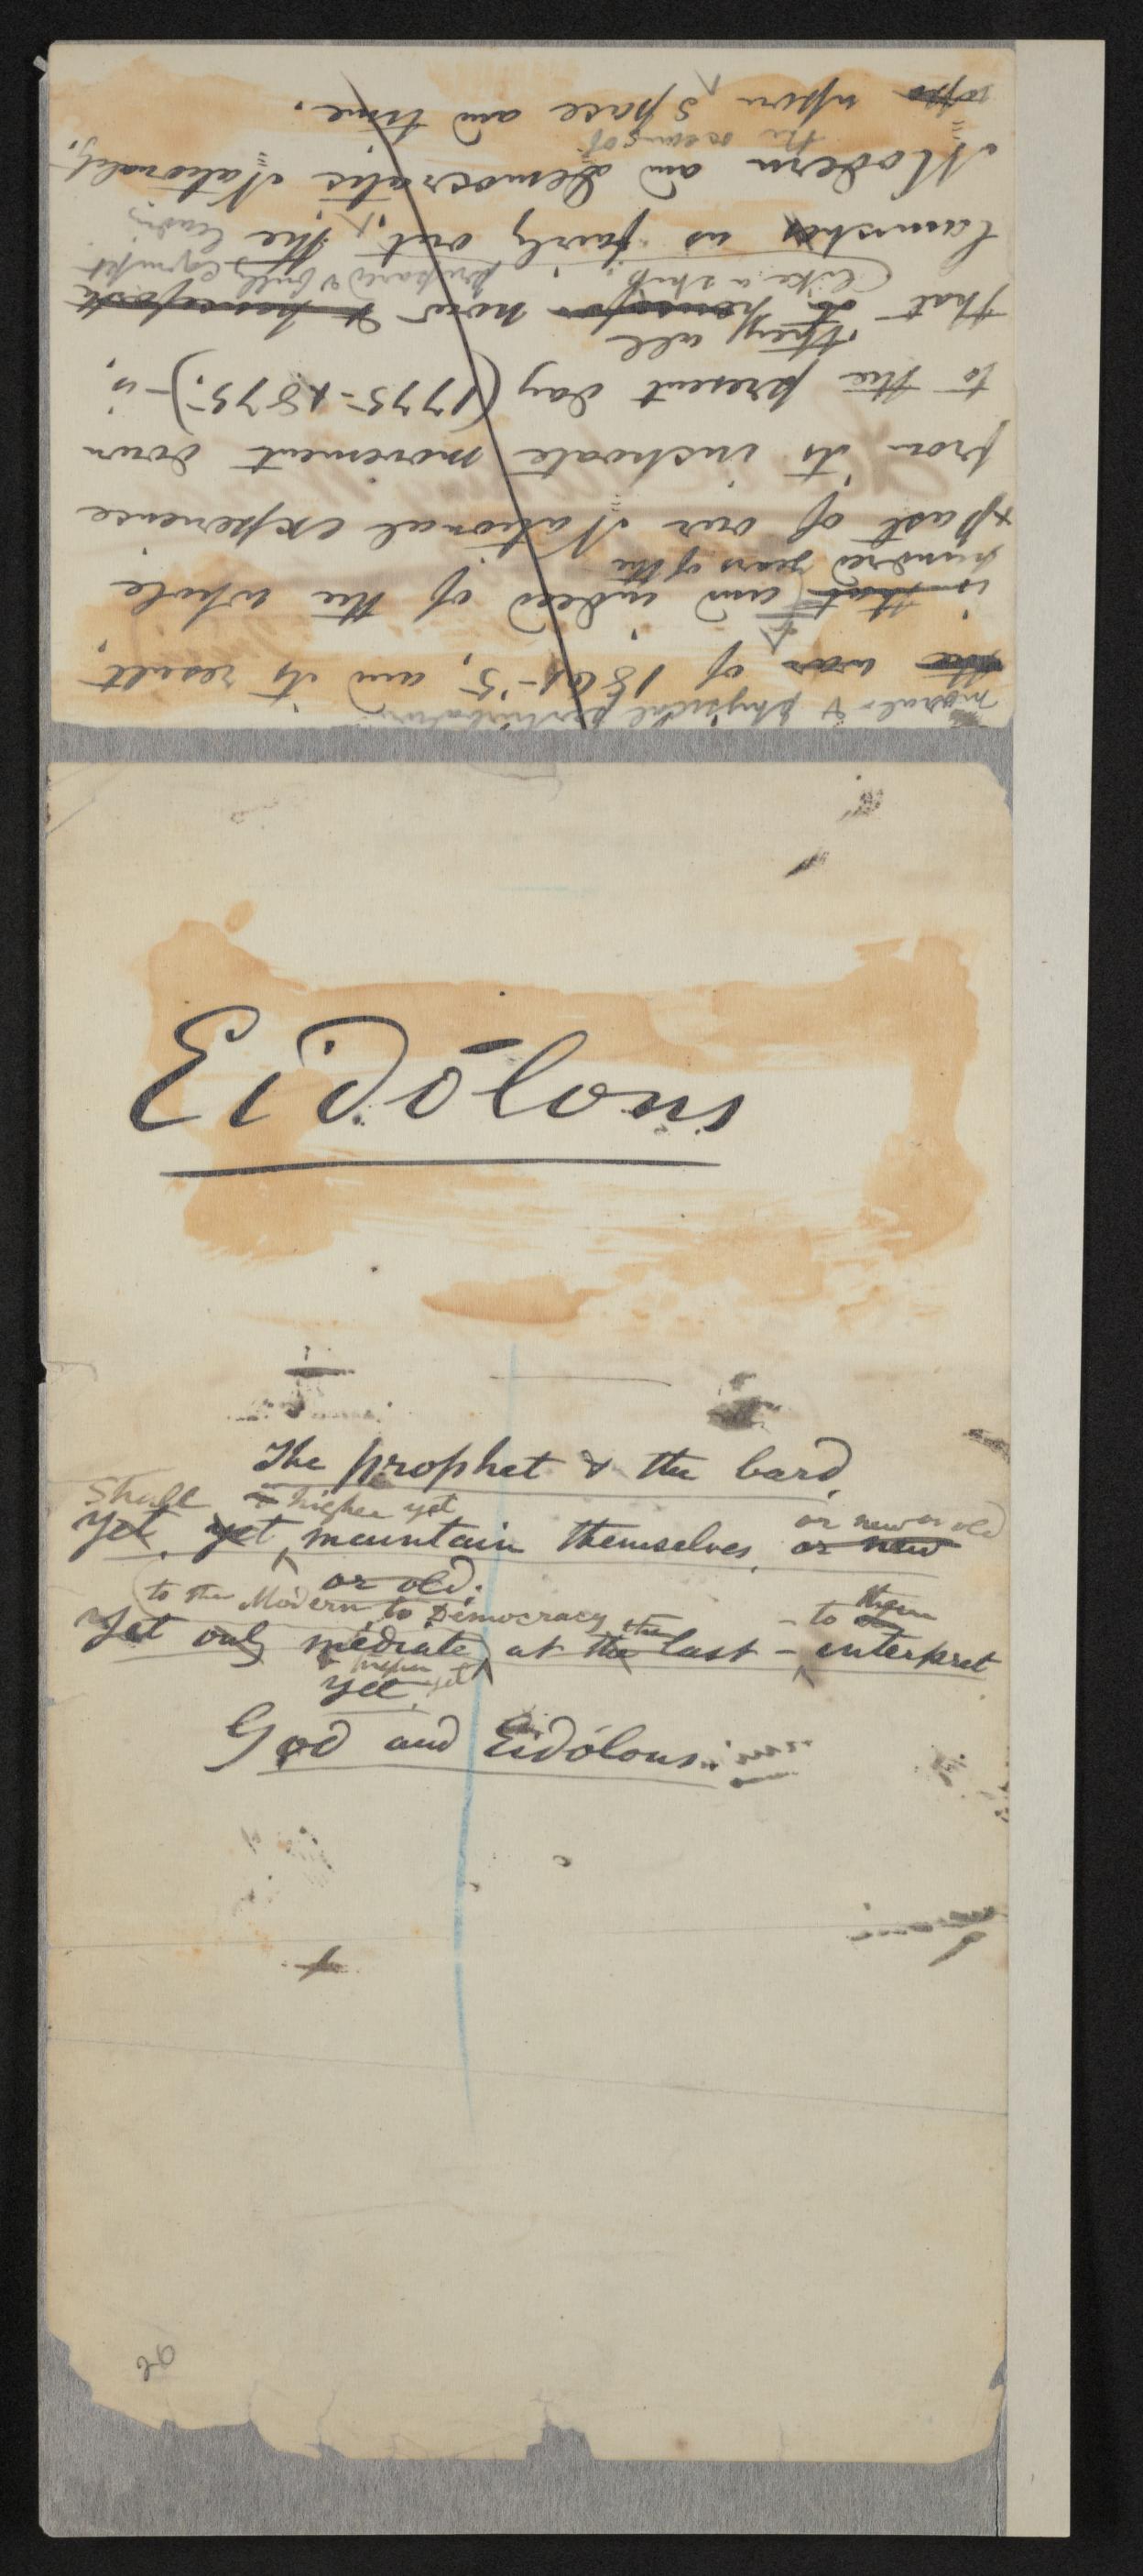 moral & physical perturbation
the war of 1861-'5, and its result,
is that and indeed of the whole
hundred years of the
past of our National experience
from its inchoate movement down
to the present day (1775-1875,)—is,
they all
that to now & henceforth
(like a ship, prepared & fully equipt
launched us fairly out, the leading
Modern and democratic Nationality,
the oceans of
upon Space and time.
Eidólons
The prophet & the bard,
Shall & higher yet or new or old
Yet, yet, maintain themselves, or new
or old.
to the Modern, to Democracy the – to them
Yet only mediate at the last – interpret
& higher yet
yet,
God and Eidólons.
20